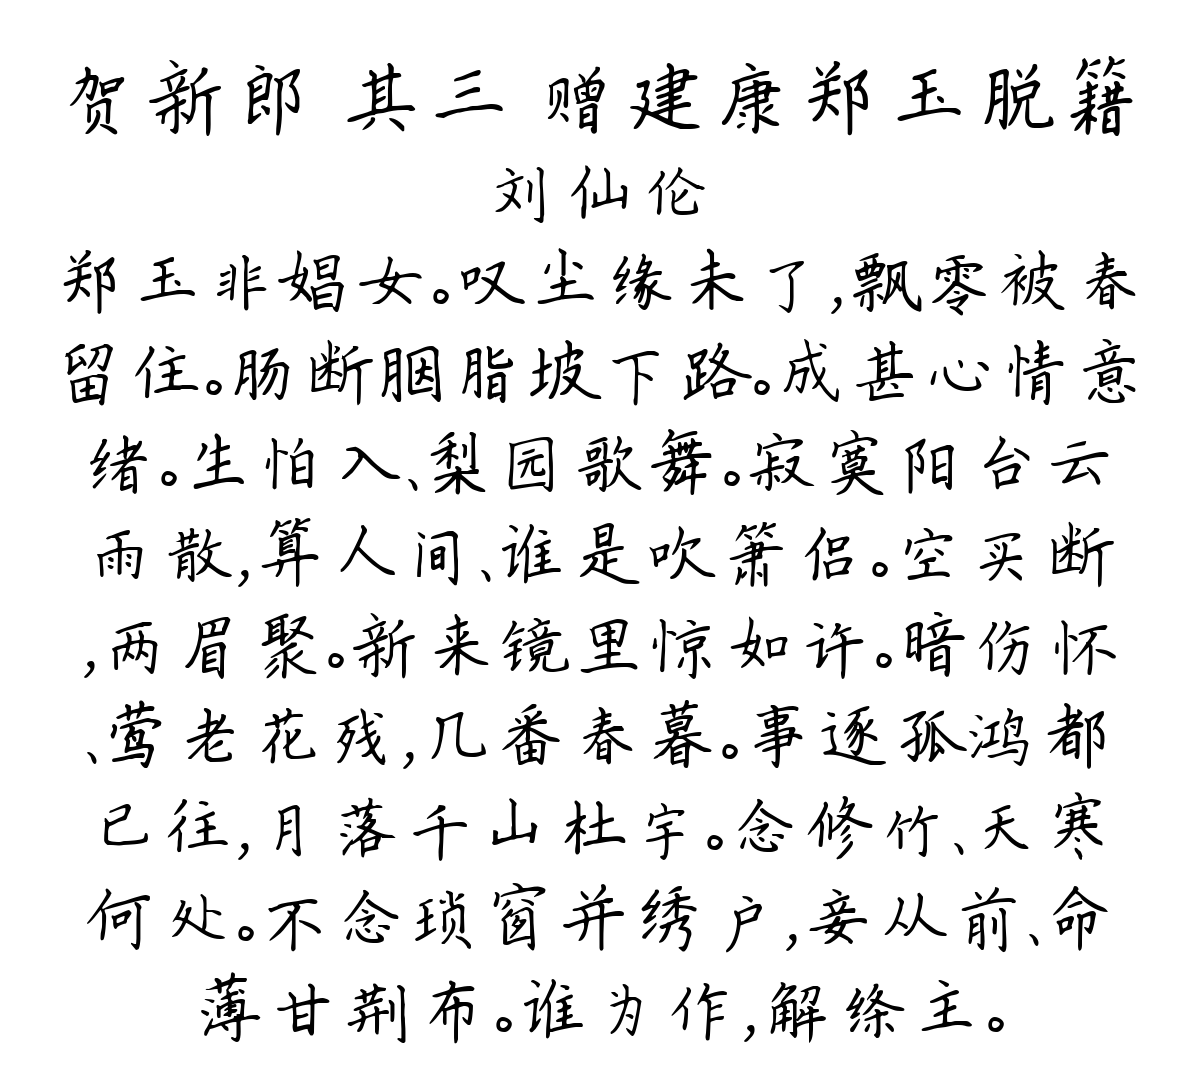 贺新郎 其三 赠建康郑玉脱籍
刘仙伦
郑玉非娼女。叹尘缘未了,飘零被春
留住。肠断胭脂坡下路。成甚心情意
绪。生怕入、梨园歌舞。寂寞阳台云
雨散,算人间、谁是吹箫侣。空买断
,两眉聚。新来镜里惊如许。暗伤怀
、莺老花残,几番春暮。事逐孤鸿都
已往,月落千山杜宇。念修竹、天寒
何处。不念琐窗并绣户,妾从前、命
薄甘荆布。谁为作,解绦主。